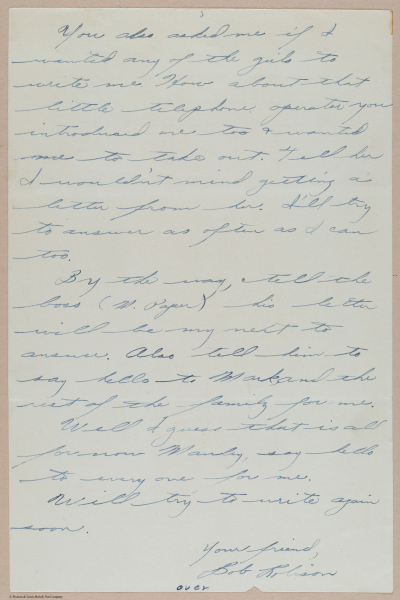 You also asked me if I
wanted any of the girls to
write me. How about that
little telephone operator you
introduced me too & wanted
me to take out. Tell her
I wouldn't mind getting a
letter from her. I'll try
to answer as often as I can
too.
By the way, tell the
boss (W. Paper) his letter
will be my next to
answer. Also tell him to
say hello to Mark and the
rest of the family for me.
Well I guess that is all
for now Manly, say hello
to every one for me.
Will try to write again
soon.
Your friend,
Bob Robison
over